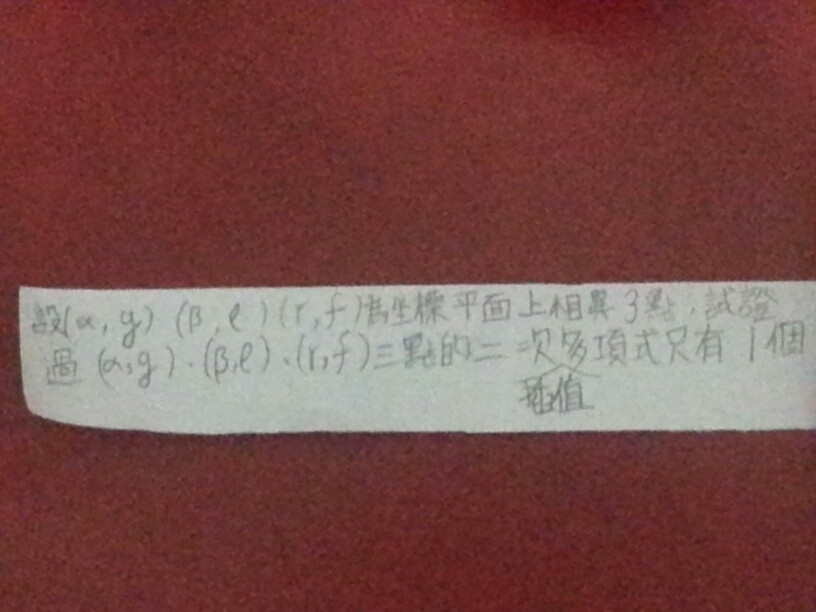 設(α, g) (β, e) (r, f)為坐標平面上相異3點, 試證
過 (α, g)、(β, e)、(r, f)三點的二次多項式只有1個
插值